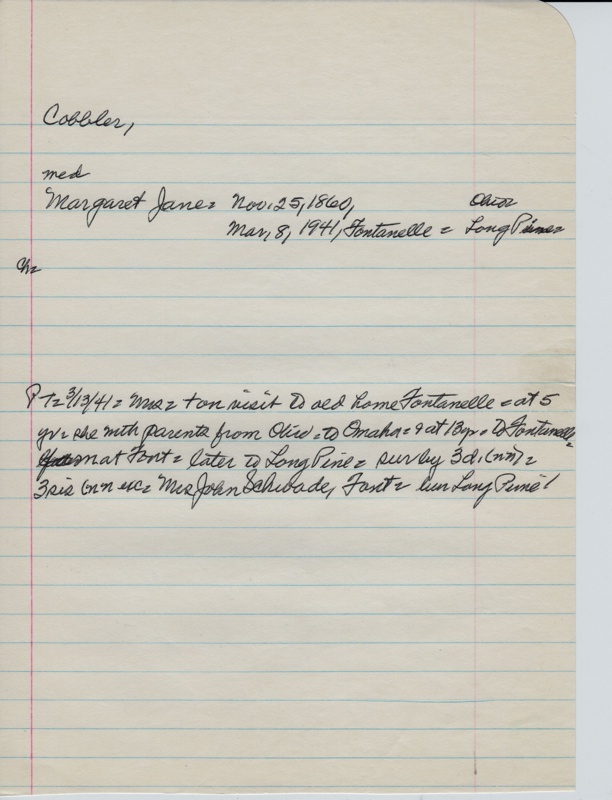 Cobbler,
med
Margaret Jane = Nov. 25, 1860, Ohio
Mar, 8, 1941, Fontanelle = Long Pine =
Ch=
P T= 3/13/41 = Mrs = + on visit to old home Fontanelle = at 5
yr = she with parents from Ohio = to Omaha = & at 13 yr = to Fontanelle =
m at Font = later to Long Pine = sur by 3 d. (nn) =
3 sis (nn exc = Mrs John Schwade, Font = bur Long Pine!